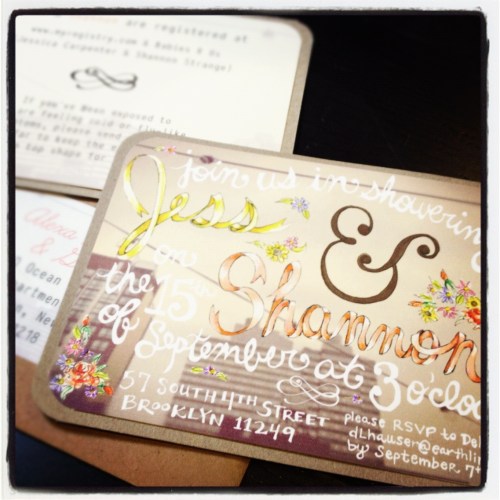 are registered at
www.myregistry.com & Babies R Us
Jessica Carpenter & Shannon Strange)
If you've been exposed to
are feeling cold or
please send
to keep the
shape for
Alexa
&
Ocean
partment
New
7218
join us in showering
Jess
&
Shannon
on
the 15th
of September at 3 o'clo
57 SOUTH 4TH STREET
BROOKLYN 11249
please RSVP to De
dLhauser@earthli
by September 7t